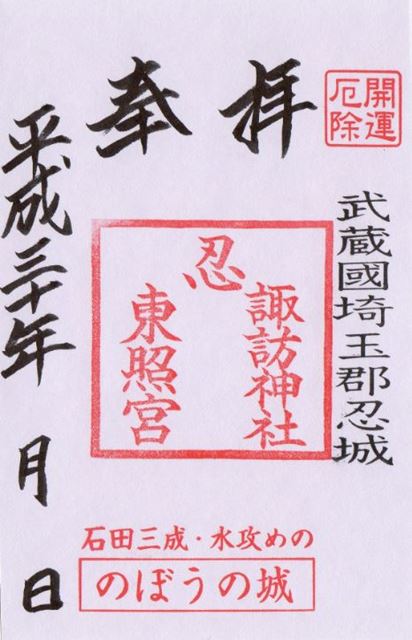 開運
厄除
奉拝
武蔵國埼玉郡忍城
忍
諏訪神社
東照宮
平成三十年 月 日
石田三成・水攻めの
のぼうの城